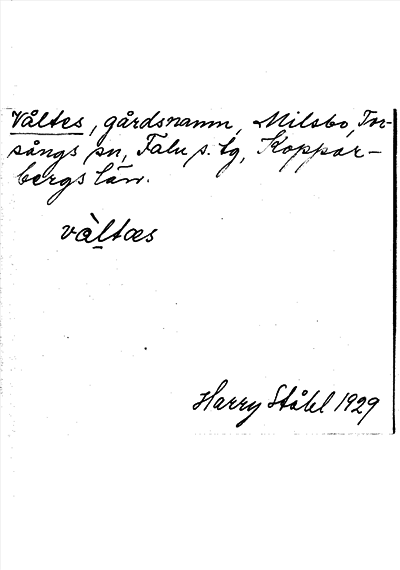 Våltes, gårdsnamn, Milsbo, Tor-
sångs sn, Falu s. tg, Koppar-
bergs län.
våltæs
Harry Ståhl 1929